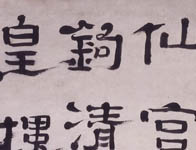 仙宮
鉤清
皇